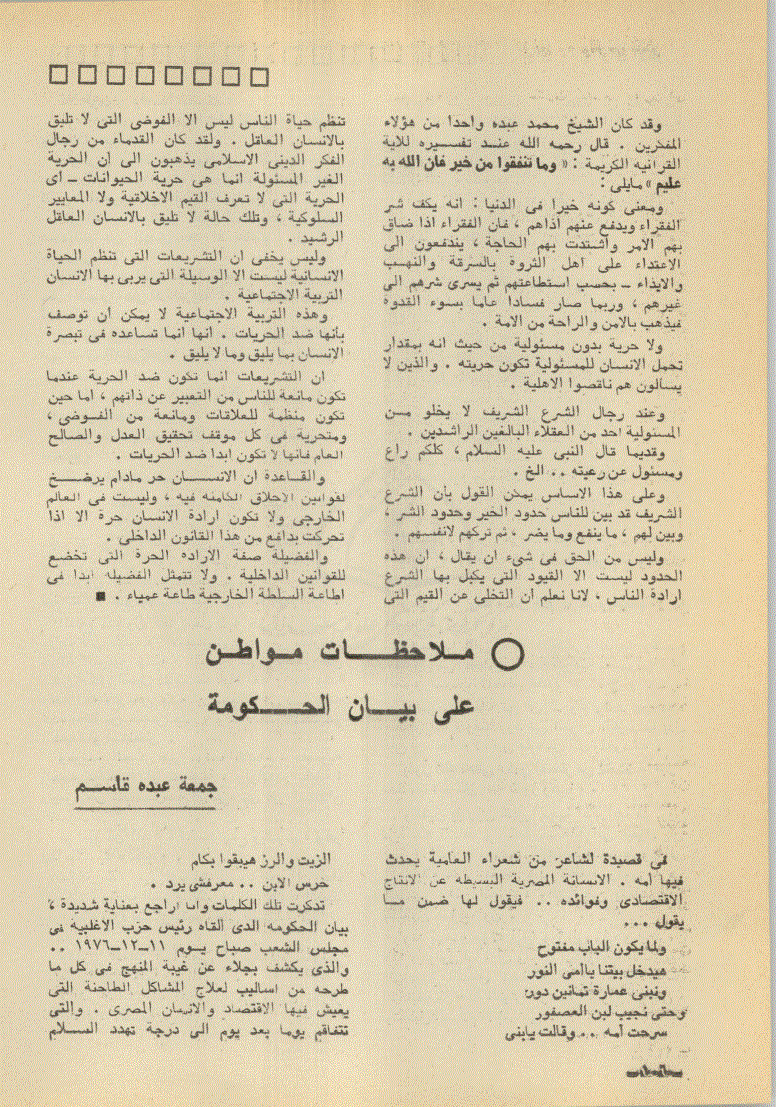 وقد كان الشيخ محمد عبده واحدا من هؤلاء
المفكرين . قال رحمه الله عنسد تفسسيره للآية
القرآنية الكريمة : « وما تنفقوا من خير فان الله به
عليم » مايلى :
ومعنى كونه خيرا فى الدنيا : انه يكف شر
الفقراء ويدفع عنهم أذاهم ، فان الفقراء اذا ضاق
بهم الأمر واشتدت بهم الحاجة ، يندفعون الى
الاعتداء على أهل الثروة بالسرقة والنهسب
والايذاء ــ بحسب استطاعتهم ثم يسرى شرهم الى
غيرهم ، وربما صار فسادا عاما بسوء القدوة
فيذهب بالأمن والراحة من الأمة .
ولا حرية بدون مسئولية من حيث انه بمقدار
تحمل الانسان للمسئولية تكون حريته . والذين لا
يسألون هم ناقصوا الأهلية .
وعند رجال الشرع الشريف لا يخلو مسن
المسئولية أحد من العقلاء البالغين الراشدين .
وقديما قال النبى عليه السلام ، كلكم راع
ومسئول عن رعيته .. الخ .
وعلى هذا الأساس يمكن القول بأن الشرع
الشريف قد بين للناس حدود الخير وحدود الشر ،
وبين لهم ، ما ينفع وما يضر ، ثم تركهم لأنفسهم .
وليس من الحق فى شىء أن يقال ، ان هذه
الحدود ليست الا القيود التى يكبل بها الشرع
ارادة الناس ، لأنا نعلم أن التخلى عن القيم التى
تنظم حياة الناس ليس الا الفوضى التى لا تليق
بالانسان العاقل . ولقد كان القدماء من رجال
الفكر الدينى الاسلامى يذهبون الى أن الحرية
الغير المسئولة انما هى حرية الحيوانات ــ أى
الحرية التى لا تعرف القيم الأخلاقية ولا المعايير
السلوكية ، وتلك حالة لا تليق بالانسان العاقل
الرشيد .
وليس يخفى أن التشريعات التى تنظم الحياة
الانسانية ليست الا الوسيلة التى يربى بها الانسان
التربية الاجتماعية .
وهذه التربية الاجتماعية لا يمكن أن توصف
بأنها ضد الحريات . أنها انما تساعده فى تبصرة
الانسان بما يليق وما لا يليق .
ان التشريعات انما تكون ضد الحرية عندما
تكون مانعة للناس من التعبير عن ذاتهم ، اما حين
تكون منظمة للعلاقات ومانعة من الفسوضى ،
ومتحرية فى كل موقف تحقيق العدل والصالح
العام فانها لا تكون أبدا ضد الحريات .
والقساعدة أن الانسسسان حر مادام يرضسخ
لقوانين الأخلاق الكامنة فيه ، وليست فى العالم
الخارجى ولا تكون ارادة الانسان حرة الا اذا
تحركت بدافع من هذا القانون الداخلى .
والفضيلة صفة الارادة الحرة التى تخضع
للقوانين الداخلية . ولا تتمثل الفضيلة أبدا فى
اطاعة السلطة الخارجية طاعة عمياء . ■
ملاحظـــات مـواطـن
على بيـــان الحـــكومة
جمعة عبده قاســـم
فى قصيدة لشاعر من شعراء العامية يحدث
فيها أمه . الانسانة المصرية البسيطة عن الانتاج
الاقتصادى وفوائده .. فيقول لها ضمن مسا
يقول ...
ولما يكون الباب مفتوح
هيدخل بيتنا ياامى النور
ونبنى عمارة تمانين دور
وحتى نجيب لبن العصفور
سرحت أمه .. وقالت يابنى
الزيت والرز هيبقوا بكام
خرس الابن .. معرفشى يرد .
تذكرت تلك الكلمات وأنا أراجع بعناية شديدة ،
بيان الحكومة الذى ألقاه رئيس حزب الأغلبية فى
مجلس الشعب صباح يسوم ١١–١٢–١٩٧٦ ..
والذى يكشف بجلاء عن غيبة المنهج فى كل ما
طرحه من أساليب لعلاج المشاكل الطاحنة التى
يعيش فيها الاقتصاد والانسان المصرى . والتى
تتفاقم يوما بعد يوم الى درجة تهدد السسلام